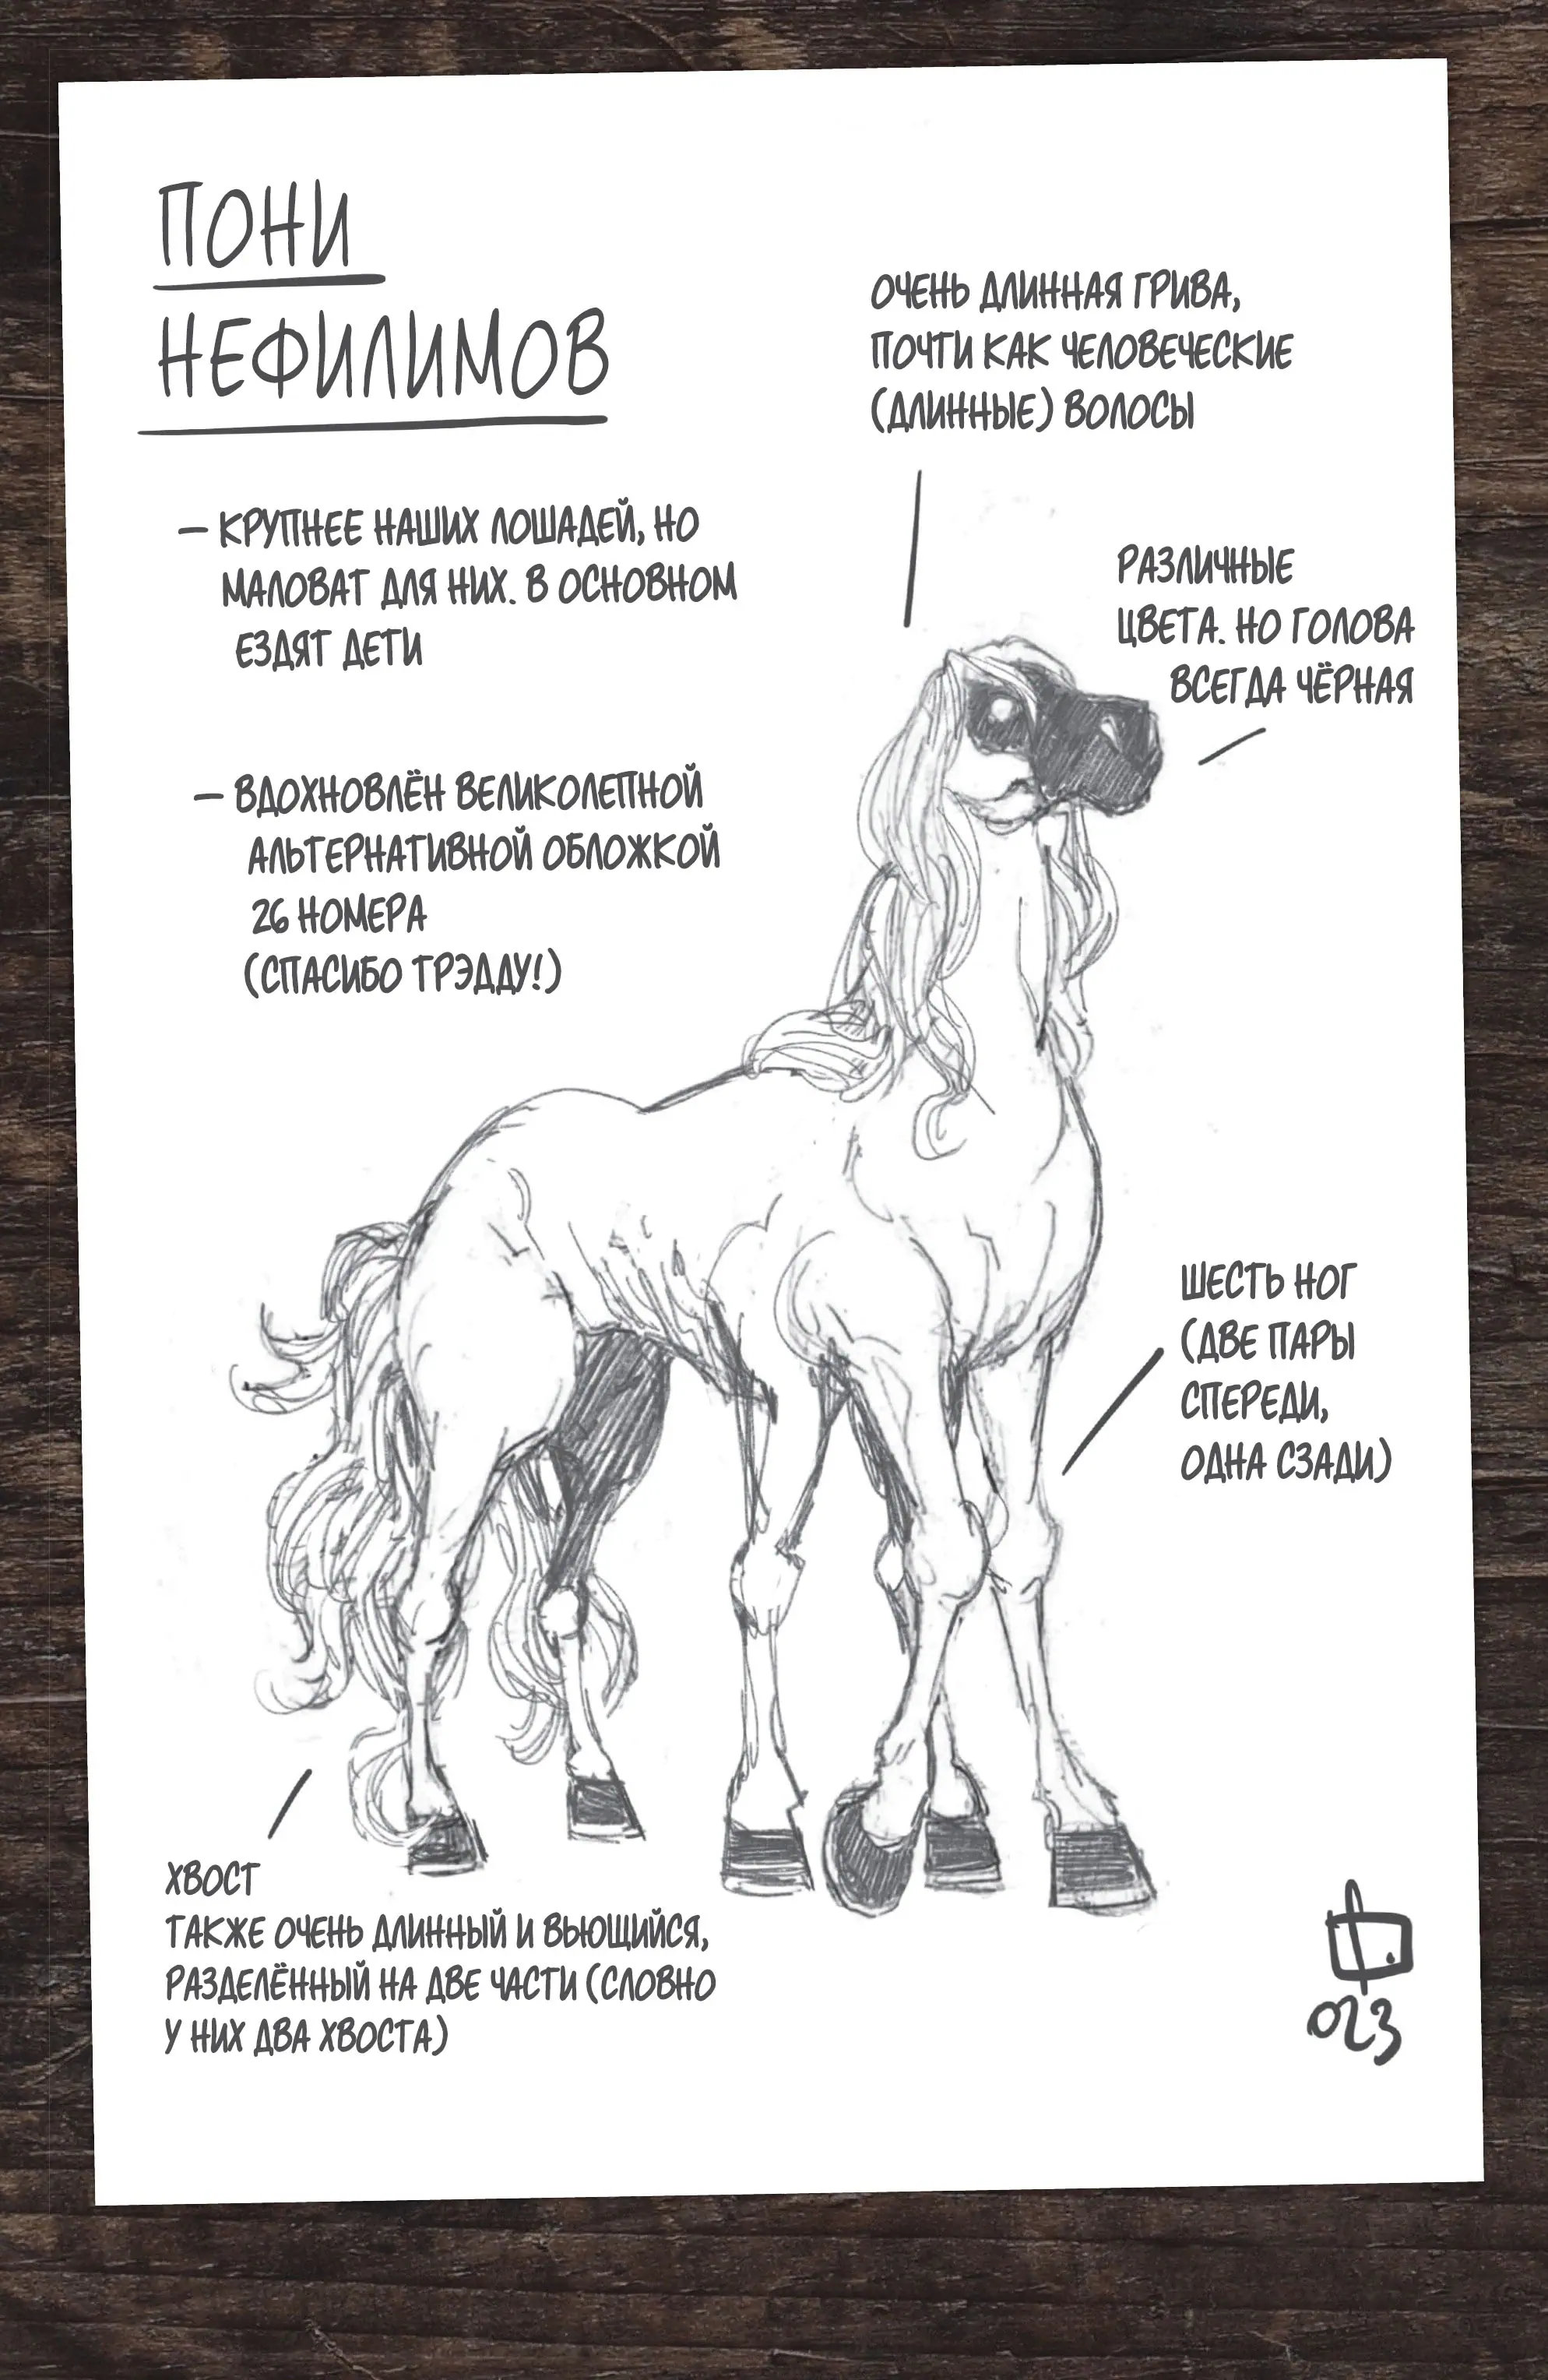 ПОНИ
НЕФИЛИМОВ
ОЧЕНЬ ДЛИННАЯ ГРИВА,
ПОЧТИ КАК ЧЕЛОВЕЧЕСКИЕ
(ДЛИННЫЕ) ВОЛОСЫ
— КРУПНЕЕ НАШИХ ЛОШАДЕЙ, НО
МАЛОВАТ ДЛЯ НИХ. В ОСНОВНОМ
ЕЗДЯТ ДЕТИ
РАЗЛИЧНЫЕ
ЦВЕТА. НО ГОЛОВА
ВСЕГДА ЧЁРНАЯ
— ВДОХНОВЛЁН ВЕЛИКОЛЕПНОЙ
АЛЬТЕРНАТИВНОЙ ОБЛОЖКОЙ
26 НОМЕРА
(СПАСИБО ТРЭДДУ!)
ШЕСТЬ НОГ
(ДВЕ ПАРЫ
СПЕРЕДИ,
ОДНА СЗАДИ)
ХВОСТ
ТАКЖЕ ОЧЕНЬ ДЛИННЫЙ И ВЬЮЩИЙСЯ,
РАЗДЕЛЁННЫЙ НА ДВЕ ЧАСТИ (СЛОВНО
У НИХ ДВА ХВОСТА)
023